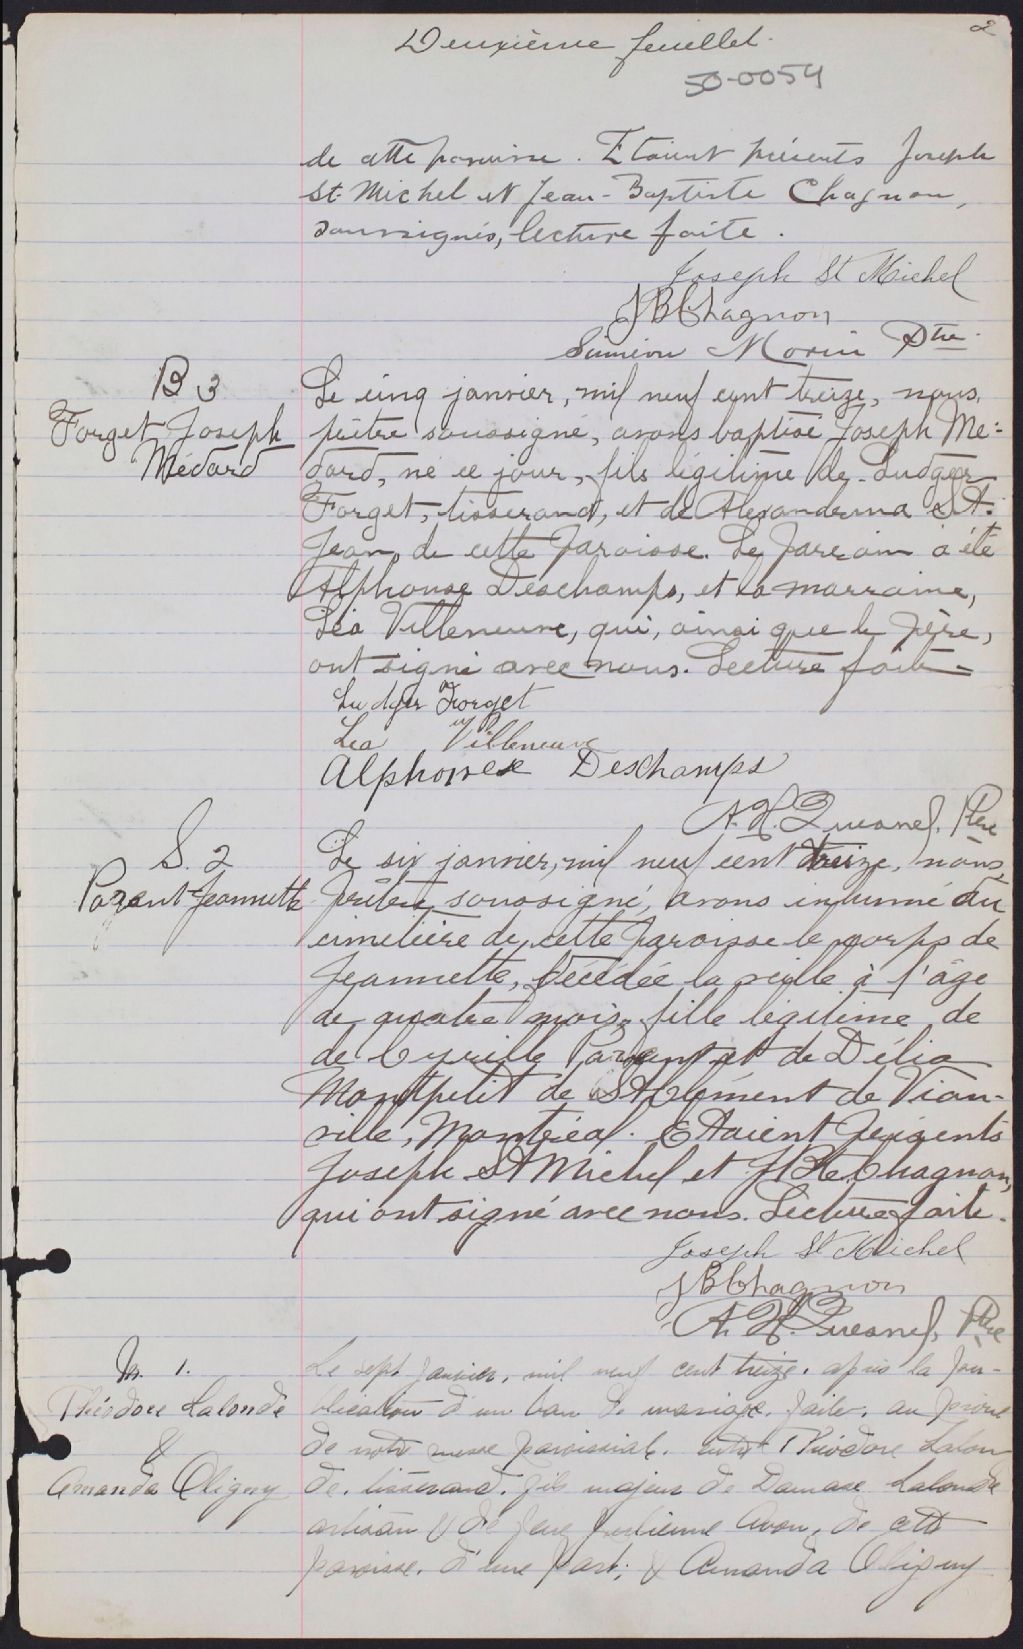 2
Deuxième feuillet.
50-0054
de cette paroisse. Etaient présents Joseph
St-Michel et Jean-Baptiste Chagnon,
soussignés, lecture faite.
Joseph St Michel
JBChagnon
Siméon Morin Ptre
B 3
Forget Joseph
Médard
Le cinq janvier, mil neuf cent treize, nous,
prêtre soussigné, avons baptisé Joseph Mé-
dard, né ce jour, fils légitime de Ludger
Forget, tisserand, et de Alexandrina St.
Jean, de cette paroisse. Le parrain a été
Alphonse Deschamps, et la marraine,
Léa Villeneuve, qui, ainsi que le père,
ont signé avec nous. Lecture faite.
Ludger Forget
Lea Villeneuve
Alphonse Deschamps
A. H. Quesnel, Ptre
S. 2
Parant Jeannette
Le six janvier, mil neuf cent treize, nous,
prêtre soussigné, avons inhumé au
cimetière de cette paroisse le corps de
Jeannette, décédée la veille à l'âge
de quatre mois, fille légitime de
de Cyrille Parant et de Délia
Montpetit de St Clément de Viau-
ville, Montréal. Etaient présents
Joseph St Michel et JBte Chagnon,
qui ont signé avec nous. Lecture faite.
Joseph St Michel
JBChagnon
A. H. Quesnel, Ptre
M. 1.
Théodore Lalonde
&
Amanda Oligny
Le sept janvier, mil neuf cent treize, après la pu-
blication d'un ban de mariage, faite, au prône
de notre messe paroissiale, entre Théodore Lalon
de, tisserand, fils majeur de Damase Lalonde
artisan & de feue Julienne Avon, de cette
paroisse, d'une part; & Amanda Oligny